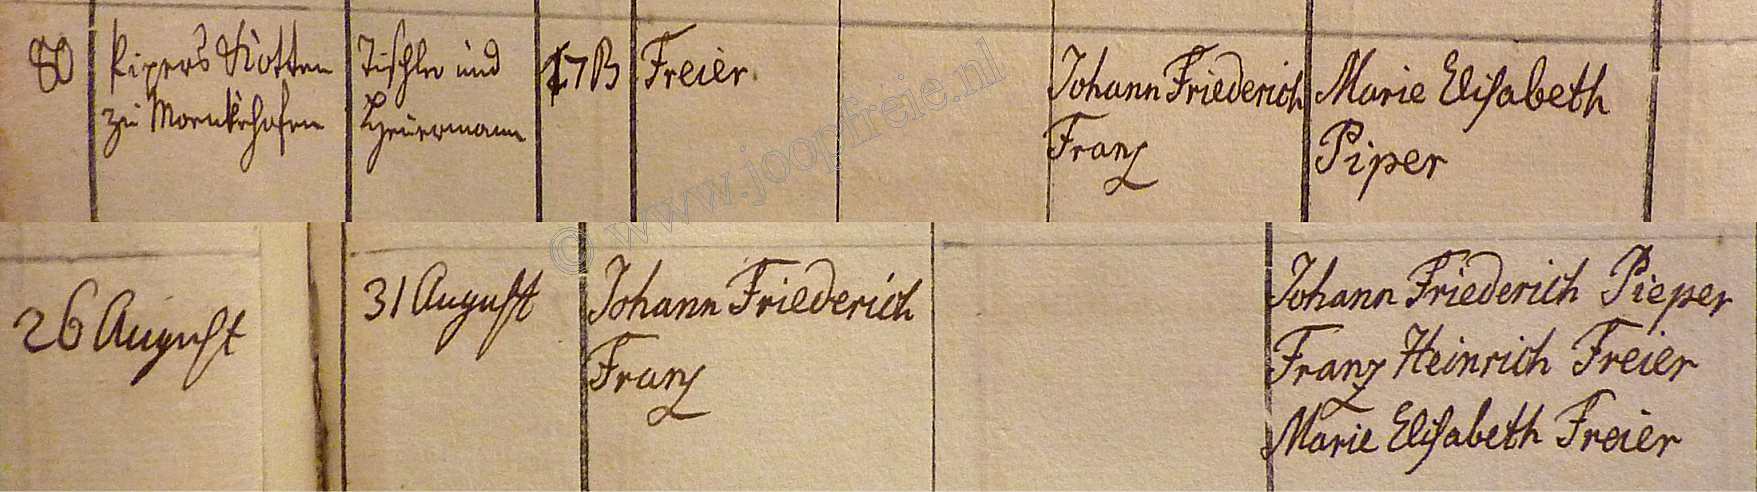 80
Pipers Kotten
zu Mornkehofen
Tischler und
Heuermann
17B
Freier
Johann Friederich
Franz
Marie Elisabeth
Piper
26 August
31 August
Johann Friederich
Franz
Johann Friederich Pieper
Franz Heinrich Freier
Marie Elisabeth Freier
© www.joopfreie.nl